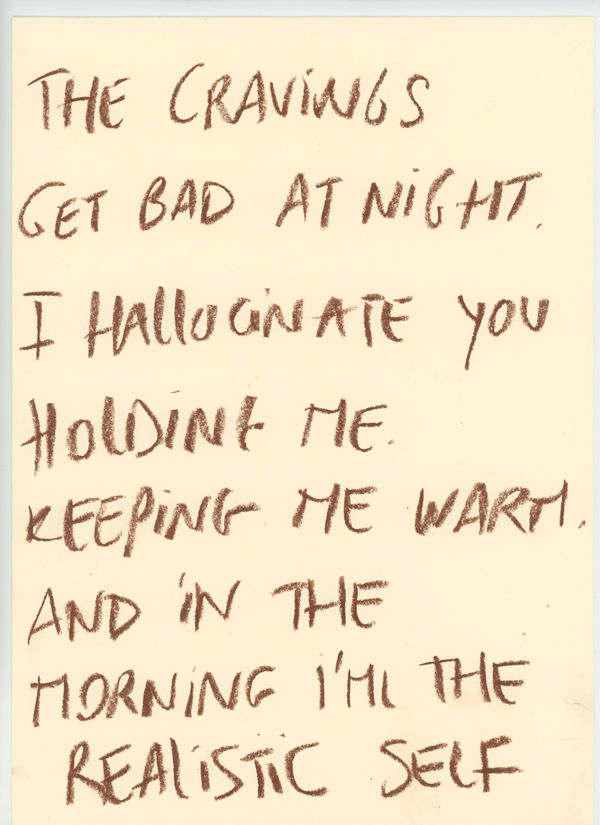 THE CRAVINGS
GET BAD AT NIGHT.
I HALLUCINATE YOU
HOLDING ME.
KEEPING ME WARM.
AND IN THE
MORNING I'M THE
REALISTIC SELF